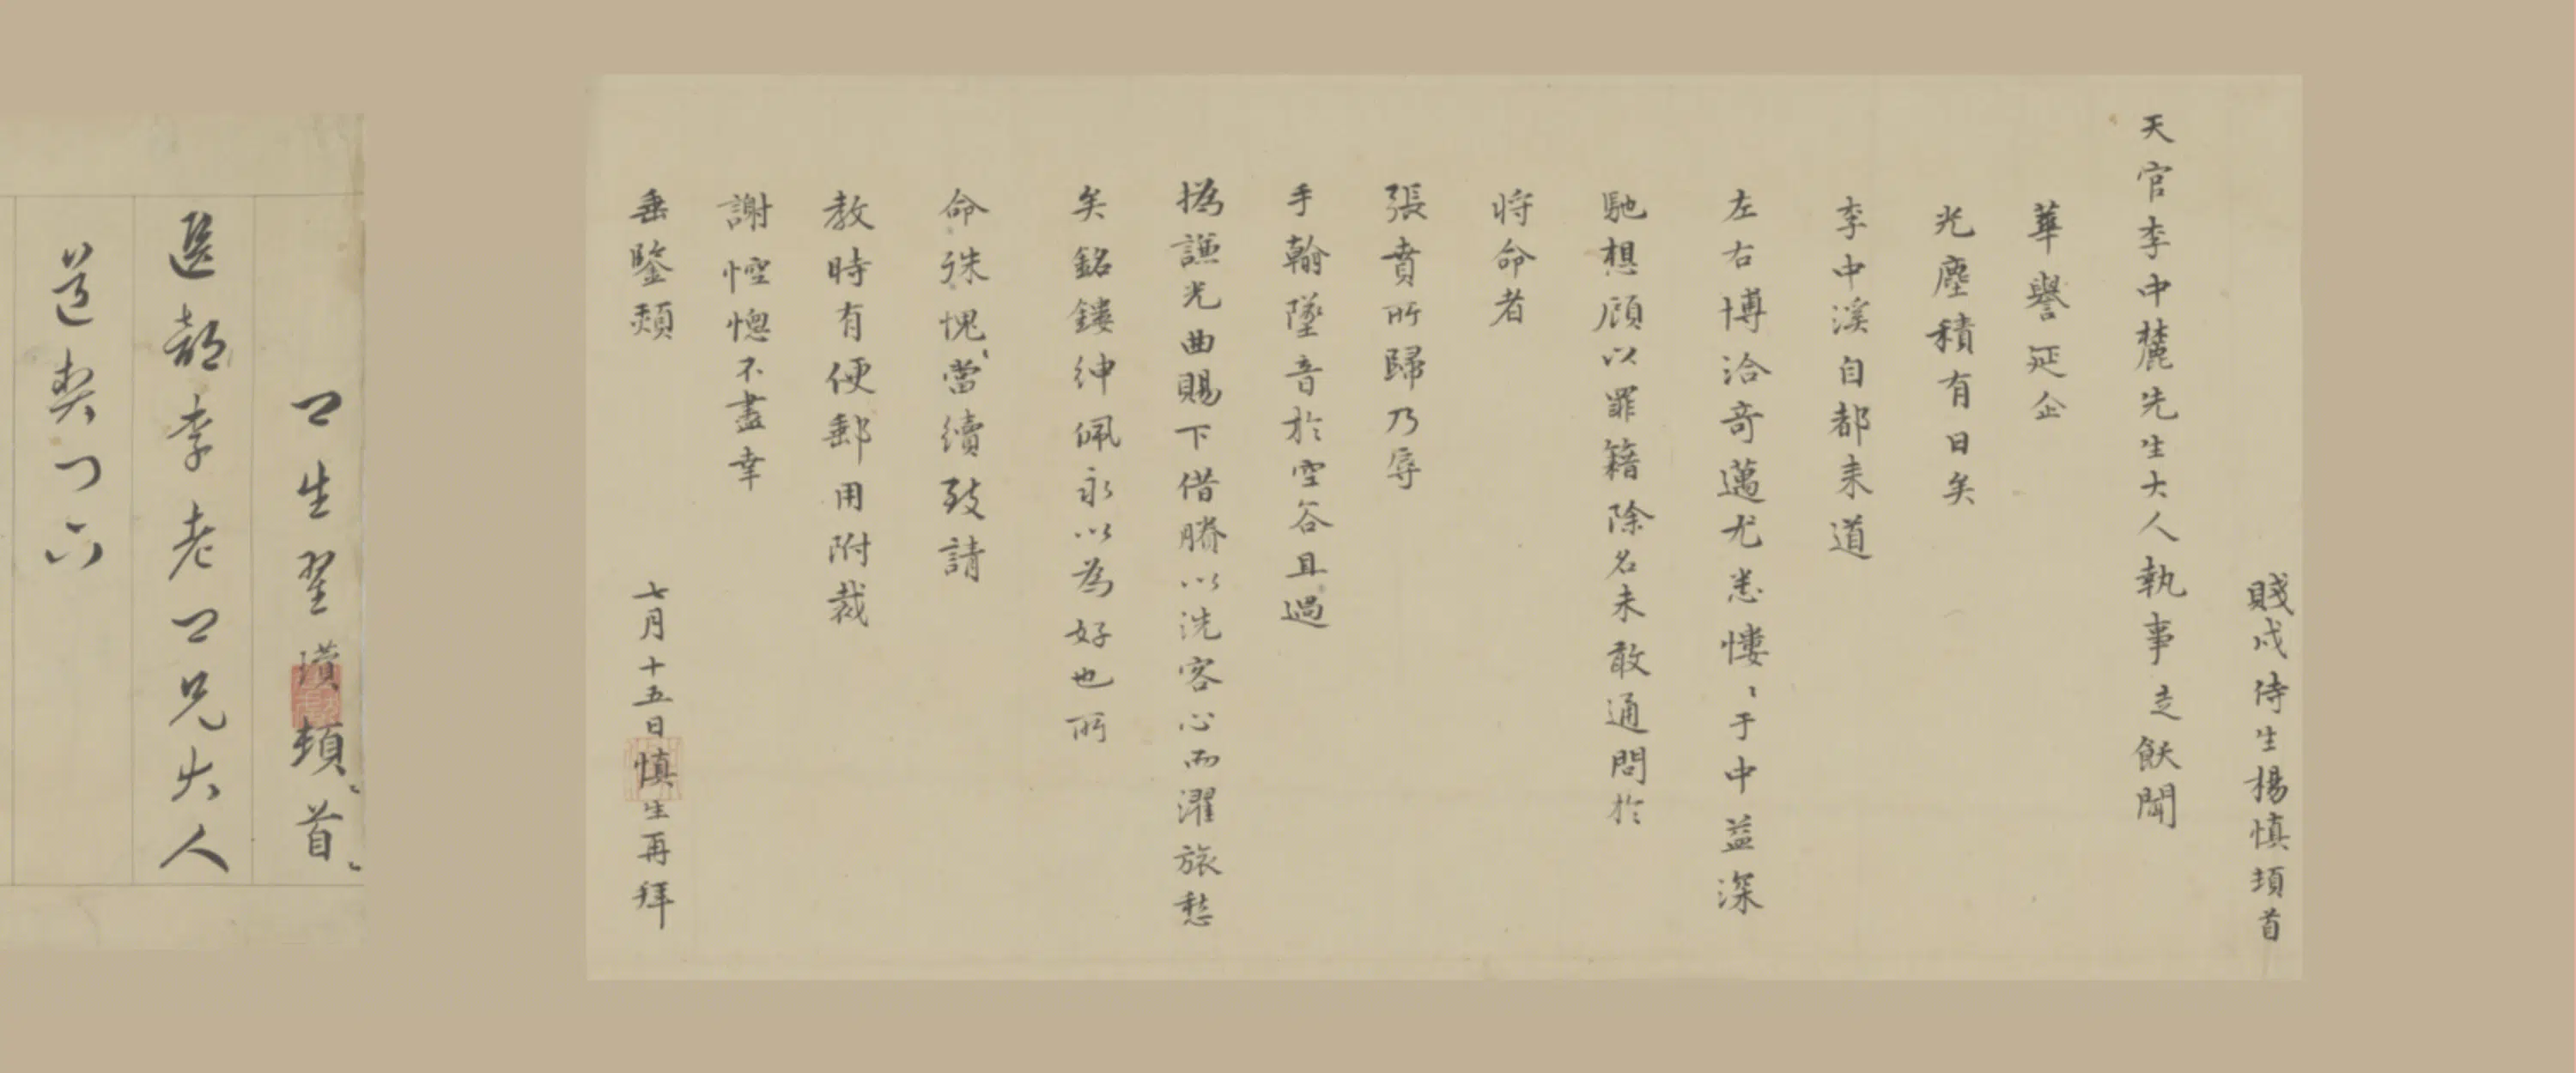 賤戍侍生楊慎頓首
天官李中麓先生大人執事走飫聞
華譽延企
光塵積有日矣
李中溪自都来道
左右博洽奇邁尤悉慺〻于中益深
馳想顧以罪籍除名未敢通問於
将命者
張賁所歸乃辱
手翰墜音於空谷且過
撝謙光曲賜下借勝以洗客心而濯旅愁
矣銘鏤紳佩永以為好也所
命殊愧〻當續致請
教時有便郵用附裁
謝悾憁不盡幸
垂鑒頼
七月十五日慎生再拜
生翟瓚頓〻首〻
選部李老兄大人
道契